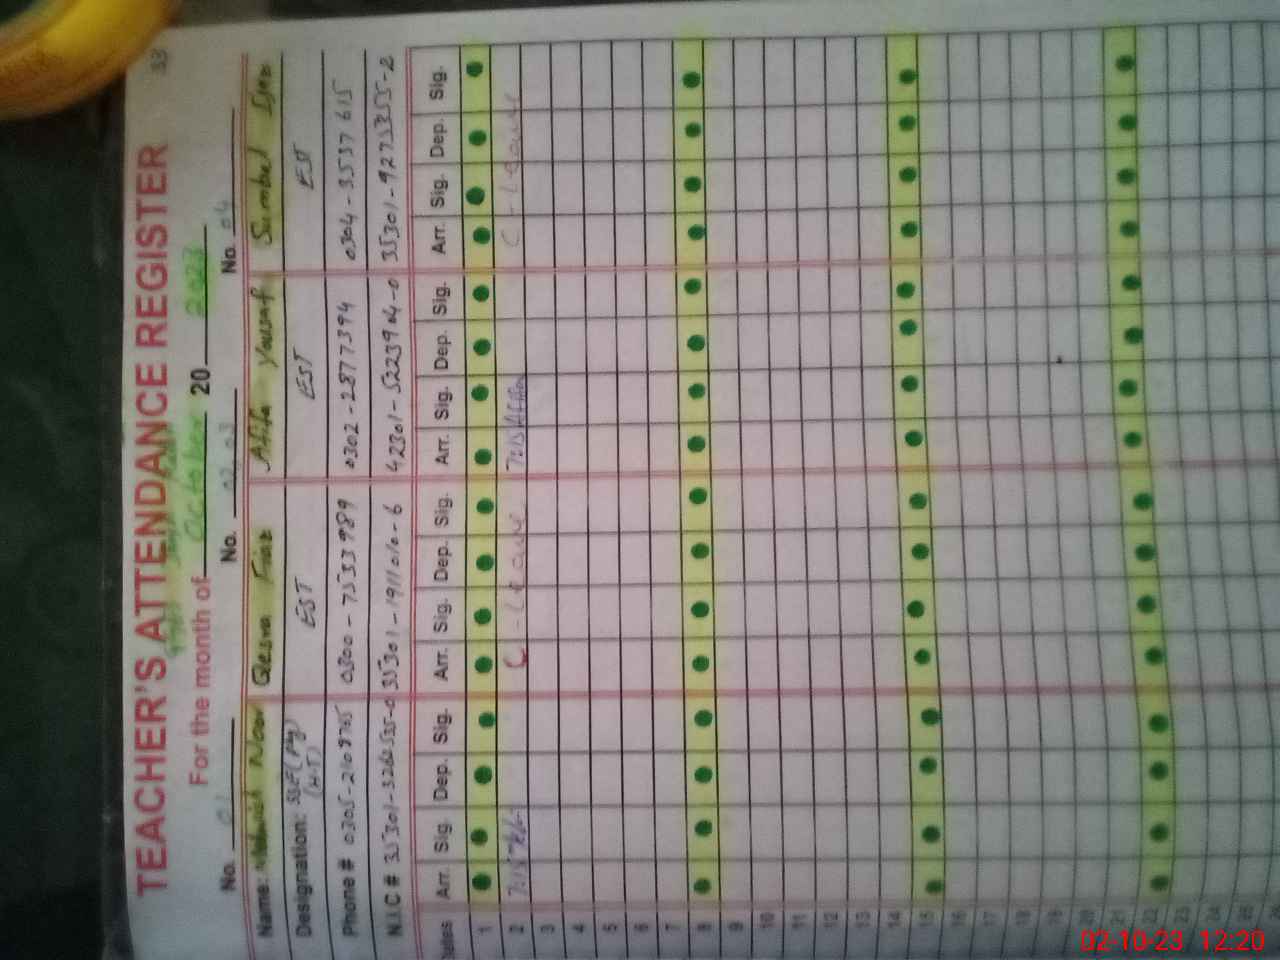 33
TEACHER'S ATTENDANCE REGISTER
For the month of October 20 2023
No. 01 No. 02 03 No. 04
Name: Noor Qesva Fiaz Afifa yousaf Sumbal
Designation: SSE (Phy) (H.T) EST EST EST
Phone # 0305-2109765 0300-7533989 0302-2877394 0304-3537615
N.I.C # 35301-3262535-0 35301-1911010-6 42301-5223904-0 35301-9273255-2
Dates Arr. Sig. Dep. Sig. Arr. Sig. Dep. Sig. Arr. Sig. Dep. Sig. Arr. Sig. Dep. Sig.
1
2 7:15 C-Leave 7:15 C-Leave
3
4
5
6
7
8
9
10
11
12
13
14
15
16
17
18
19
20
21
22
23
24
25
26
02-10-23 12:20